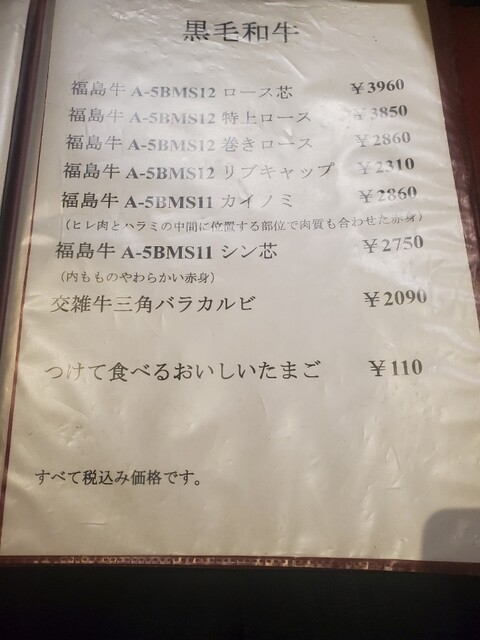 黒毛和牛
福島牛 A-5BMS12 ロース芯 ￥3960
福島牛 A-5BMS12 特上ロース ￥3850
福島牛 A-5BMS12 巻きロース ￥2860
福島牛 A-5BMS12 リブキャップ ￥2310
福島牛 A-5BMS11 カイノミ ￥2860
（ヒレ肉とハラミの中間に位置する部位で肉質も合わせた赤身）
福島牛 A-5BMS11 シン芯 ￥2750
（内もものやわらかい赤身）
交雑牛三角バラカルビ ￥2090
つけて食べるおいしいたまご ￥110
すべて税込み価格です。